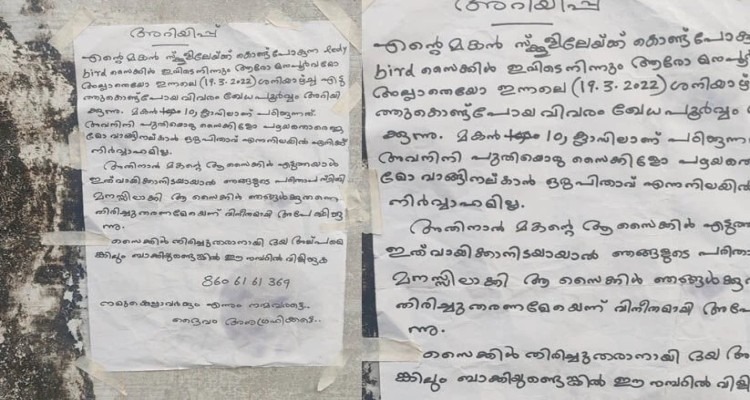 അറിയിപ്പ്
എന്റെ മകൻ സ്ക്കൂളിലേയ്ക്ക് കൊണ്ട് പോകുന്ന Lady
bird സൈക്കിൾ ഇവിടെനിന്നും ആരോ മനഃപൂർവമോ
അല്ലാതെയോ ഇന്നലെ (19.3.2022) ശനിയാഴ്ച്ച എടു
ത്തുകൊണ്ട്പോയ വിവരം ഖേധപൂർവ്വം അറിയി
ക്കുന്നു. മകൻ 10 ക്ലാസിലാണ് പഠിക്കുന്നത്.
അവനിനി പുതിയൊരു സൈക്കിളോ പഴയതൊരെണ്ണ
മോ വാങ്ങിനല്കാൻ ഒരുപിതാവ് എന്നനിലയിൽ എനിക്ക്
നിർവ്വാഹമില്ല.
അതിനാൽ മകന്റെ ആ സൈക്കിൾ എടുത്തയാൾ
ഇത് വായിക്കാനിടയായാൽ ഞങ്ങളുടെ പരിതാപസ്ഥിതി
മനസ്സിലാക്കി ആ സൈക്കിൾ ഞങ്ങൾക്കുതന്നെ
തിരിച്ചുതരണമേയെന്ന് വിനീതമായി അപേക്ഷിക്കു
ന്നു.
സൈക്കിൾ തിരിച്ചുതരാനായി ദയ അല്പമെ
ങ്കിലും ബാക്കിയുണ്ടെങ്കിൽ ഈ നമ്പരിൽ വിളിക്കുക
860 61 61 369
നമുക്കെല്ലാവർക്കും എന്നും നന്മവരട്ടെ..
ദൈവം അനുഗ്രഹിക്കട്ടെ..
അറിയിപ്പ്
എന്റെ മകൻ സ്ക്കൂളിലേയ്ക്ക് കൊണ്ട് പോകു
bird സൈക്കിൾ ഇവിടെനിന്നും ആരോ മനഃപൂർവ
അല്ലാതെയോ ഇന്നലെ (19.3.2022) ശനിയാഴ്
ത്തുകൊണ്ട്പോയ വിവരം ഖേധപൂർവ്വം
ക്കുന്നു. മകൻ 10 ക്ലാസിലാണ് പഠിക്കുന്ന
അവനിനി പുതിയൊരു സൈക്കിളോ പഴയതൊ
മോ വാങ്ങിനല്കാൻ ഒരുപിതാവ് എന്നനിലയിൽ
നിർവ്വാഹമില്ല.
അതിനാൽ മകന്റെ ആ സൈക്കിൾ എടുത്ത
ഇത് വായിക്കാനിടയായാൽ ഞങ്ങളുടെ പരിതാ
മനസ്സിലാക്കി ആ സൈക്കിൾ ഞങ്ങൾക്കു
തിരിച്ചുതരണമേയെന്ന് വിനീതമായി അപേ
ന്നു.
സൈക്കിൾ തിരിച്ചുതരാനായി ദയ അ
ങ്കിലും ബാക്കിയുണ്ടെങ്കിൽ ഈ നമ്പരിൽ വിളി